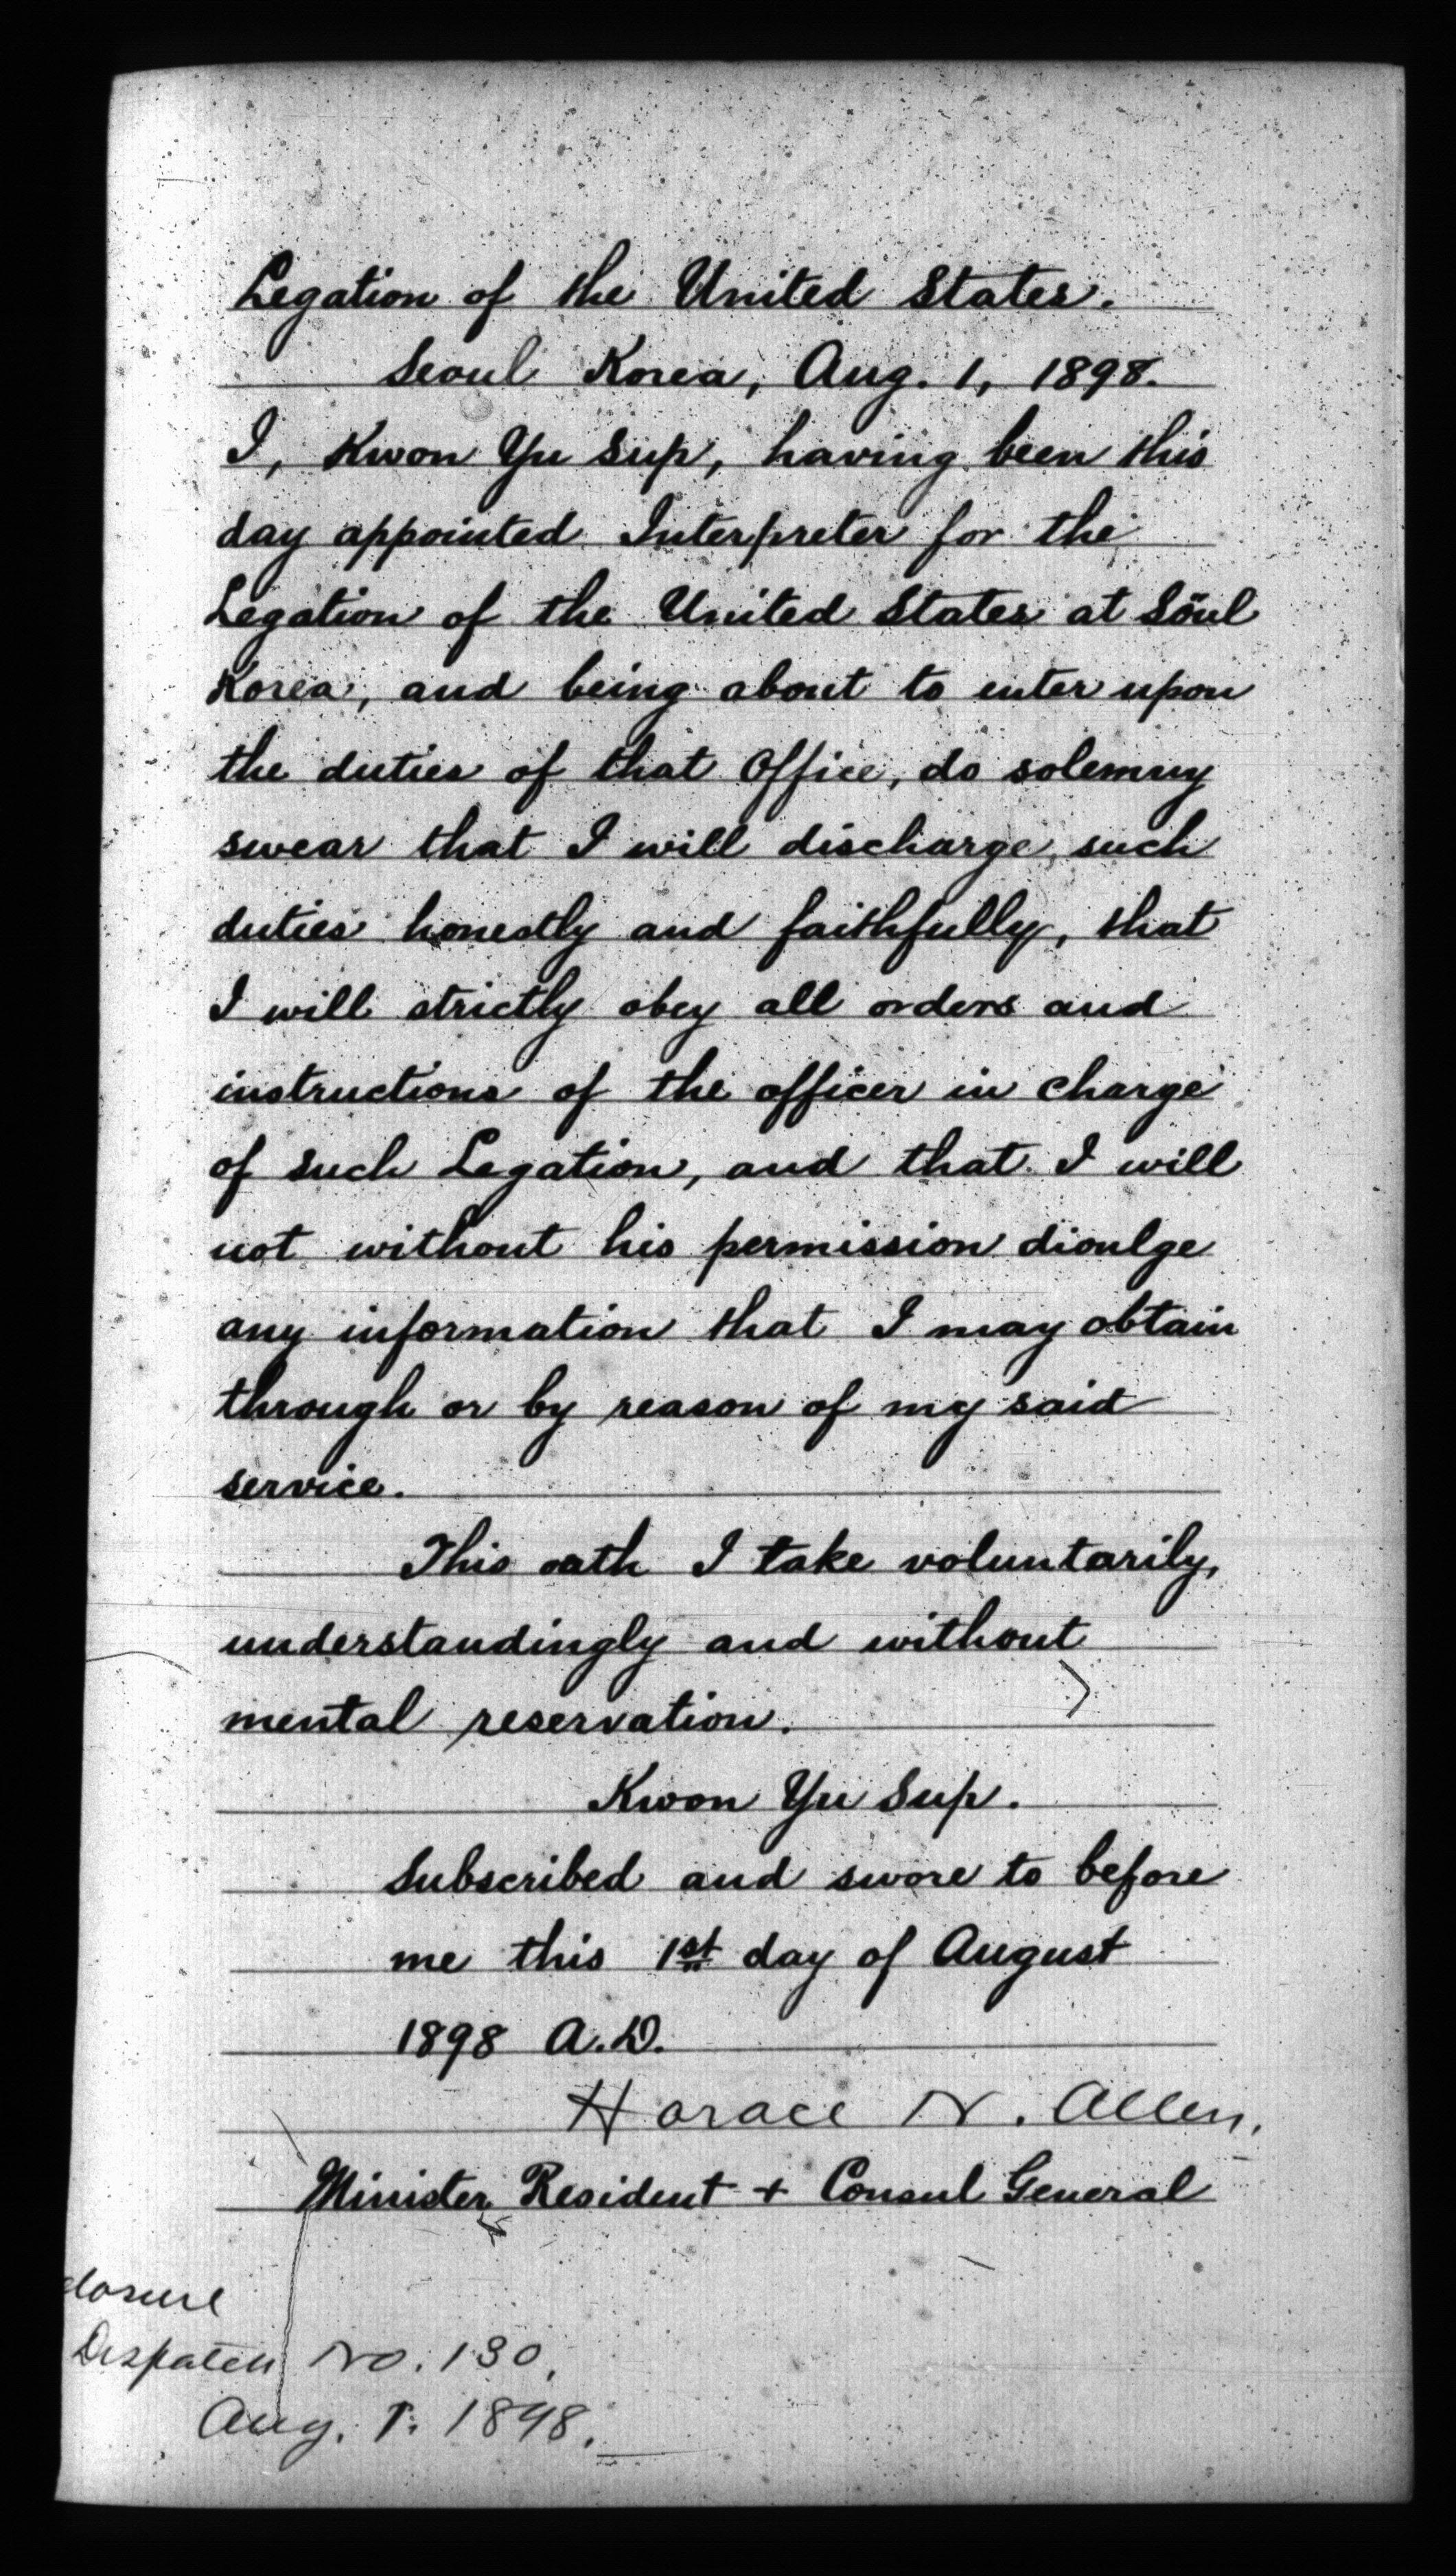 Legation of the United States.
Seoul Korea, Aug. 1, 1898.
I, Kwon Yu Sup, having been this
day appointed Interpreter for the
Legation of the United States at Söul
Korea, and being about to enter upon
the duties of that Office, do solemny
swear that I will discharge such
duties honestly and faithfully, that
I will strictly obey all orders and
instructions of the officer in charge
of such Legation, and that I will
not without his permission divulge
any information that I may obtain
through or by reason of my said
service.
This oath I take voluntarily,
understandingly and without
mental reservation.
Kwon Yu Sup.
Subscribed and swore to before
me this 1st day of August
1898 A.D.
Horace N. Allen,
Minister Resident + Consul General
closure
Dispatch No. 130,
Aug. 1. 1898.